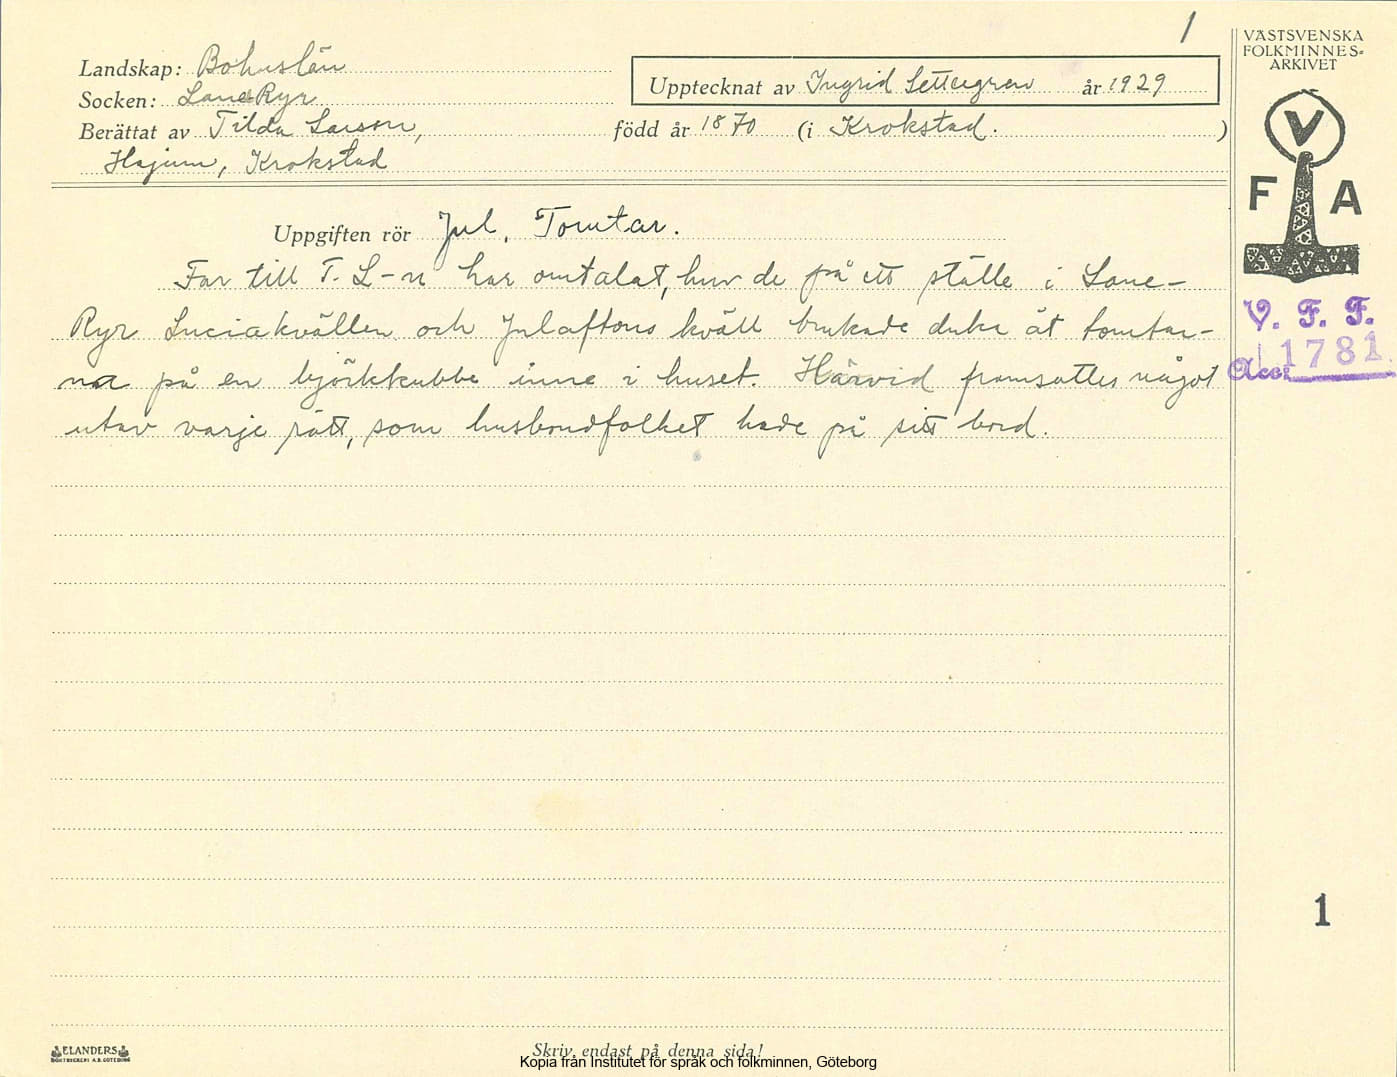 1
Landskap: Bohuslän
Socken: Lane Ryr
Upptecknat av Ingrid Settergren år 1929
Berättat av Tilda Larson, född år 1870 (i Krokstad. )
Hajum, Krokstad
Uppgiften rör Jul. Tomtar.
Far till T. L-n har omtalat, hur de på ett ställe i Lane-
Ryr Luciakvällen och Julaftons kväll brukade duka åt tomtar-
na på en björkkubbe inne i huset. Härvid framsattes något
utav varje rätt, som husbondfolket hade på sitt bord.
VÄSTSVENSKA
FOLKMINNES-
ARKIVET
V
F A
V. F. F.
Acc: 1781
1
ELANDERS
BOKTRYCKERI A.B. GÖTEBORG
Skriv endast på denna sida!
Kopia från Institutet för språk och folkminnen, Göteborg